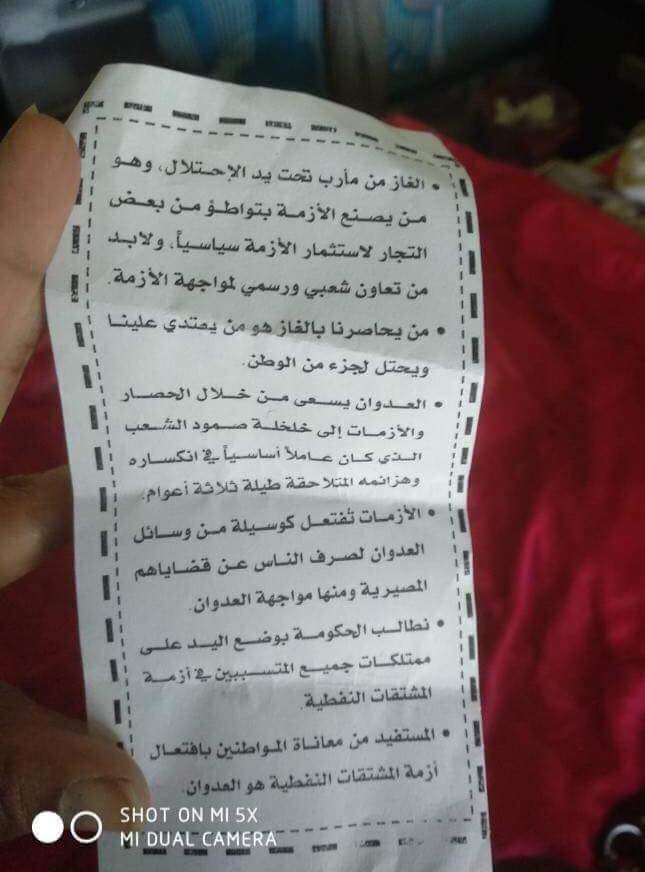 • الغاز من مأرب تحت يد الإحتلال، وهو
من يصنع الأزمة بتواطؤ من بعض
التجار لاستثمار الأزمة سياسياً، ولابد
من تعاون شعبي ورسمي لمواجهة الأزمة.
• من يحاصرنا بالغاز هو من يعتدي علينا
ويحتل لجزء من الوطن.
• العدوان يسعى من خلال الحصار
والأزمات إلى خلخلة صمود الشعب
الذي كان عاملاً أساسياً في انكساره
وهزائمه المتلاحقة طيلة ثلاثة أعوام.
• الأزمات تُفتعل كوسيلة من وسائل
العدوان لصرف الناس عن قضاياهم
المصيرية ومنها مواجهة العدوان.
• نطالب الحكومة بوضع اليد على
ممتلكات جميع المتسببين في أزمة
المشتقات النفطية.
• المستفيد من معاناة المواطنين بافتعال
أزمة المشتقات النفطية هو العدوان.
SHOT ON MI 5X
MI DUAL CAMERA